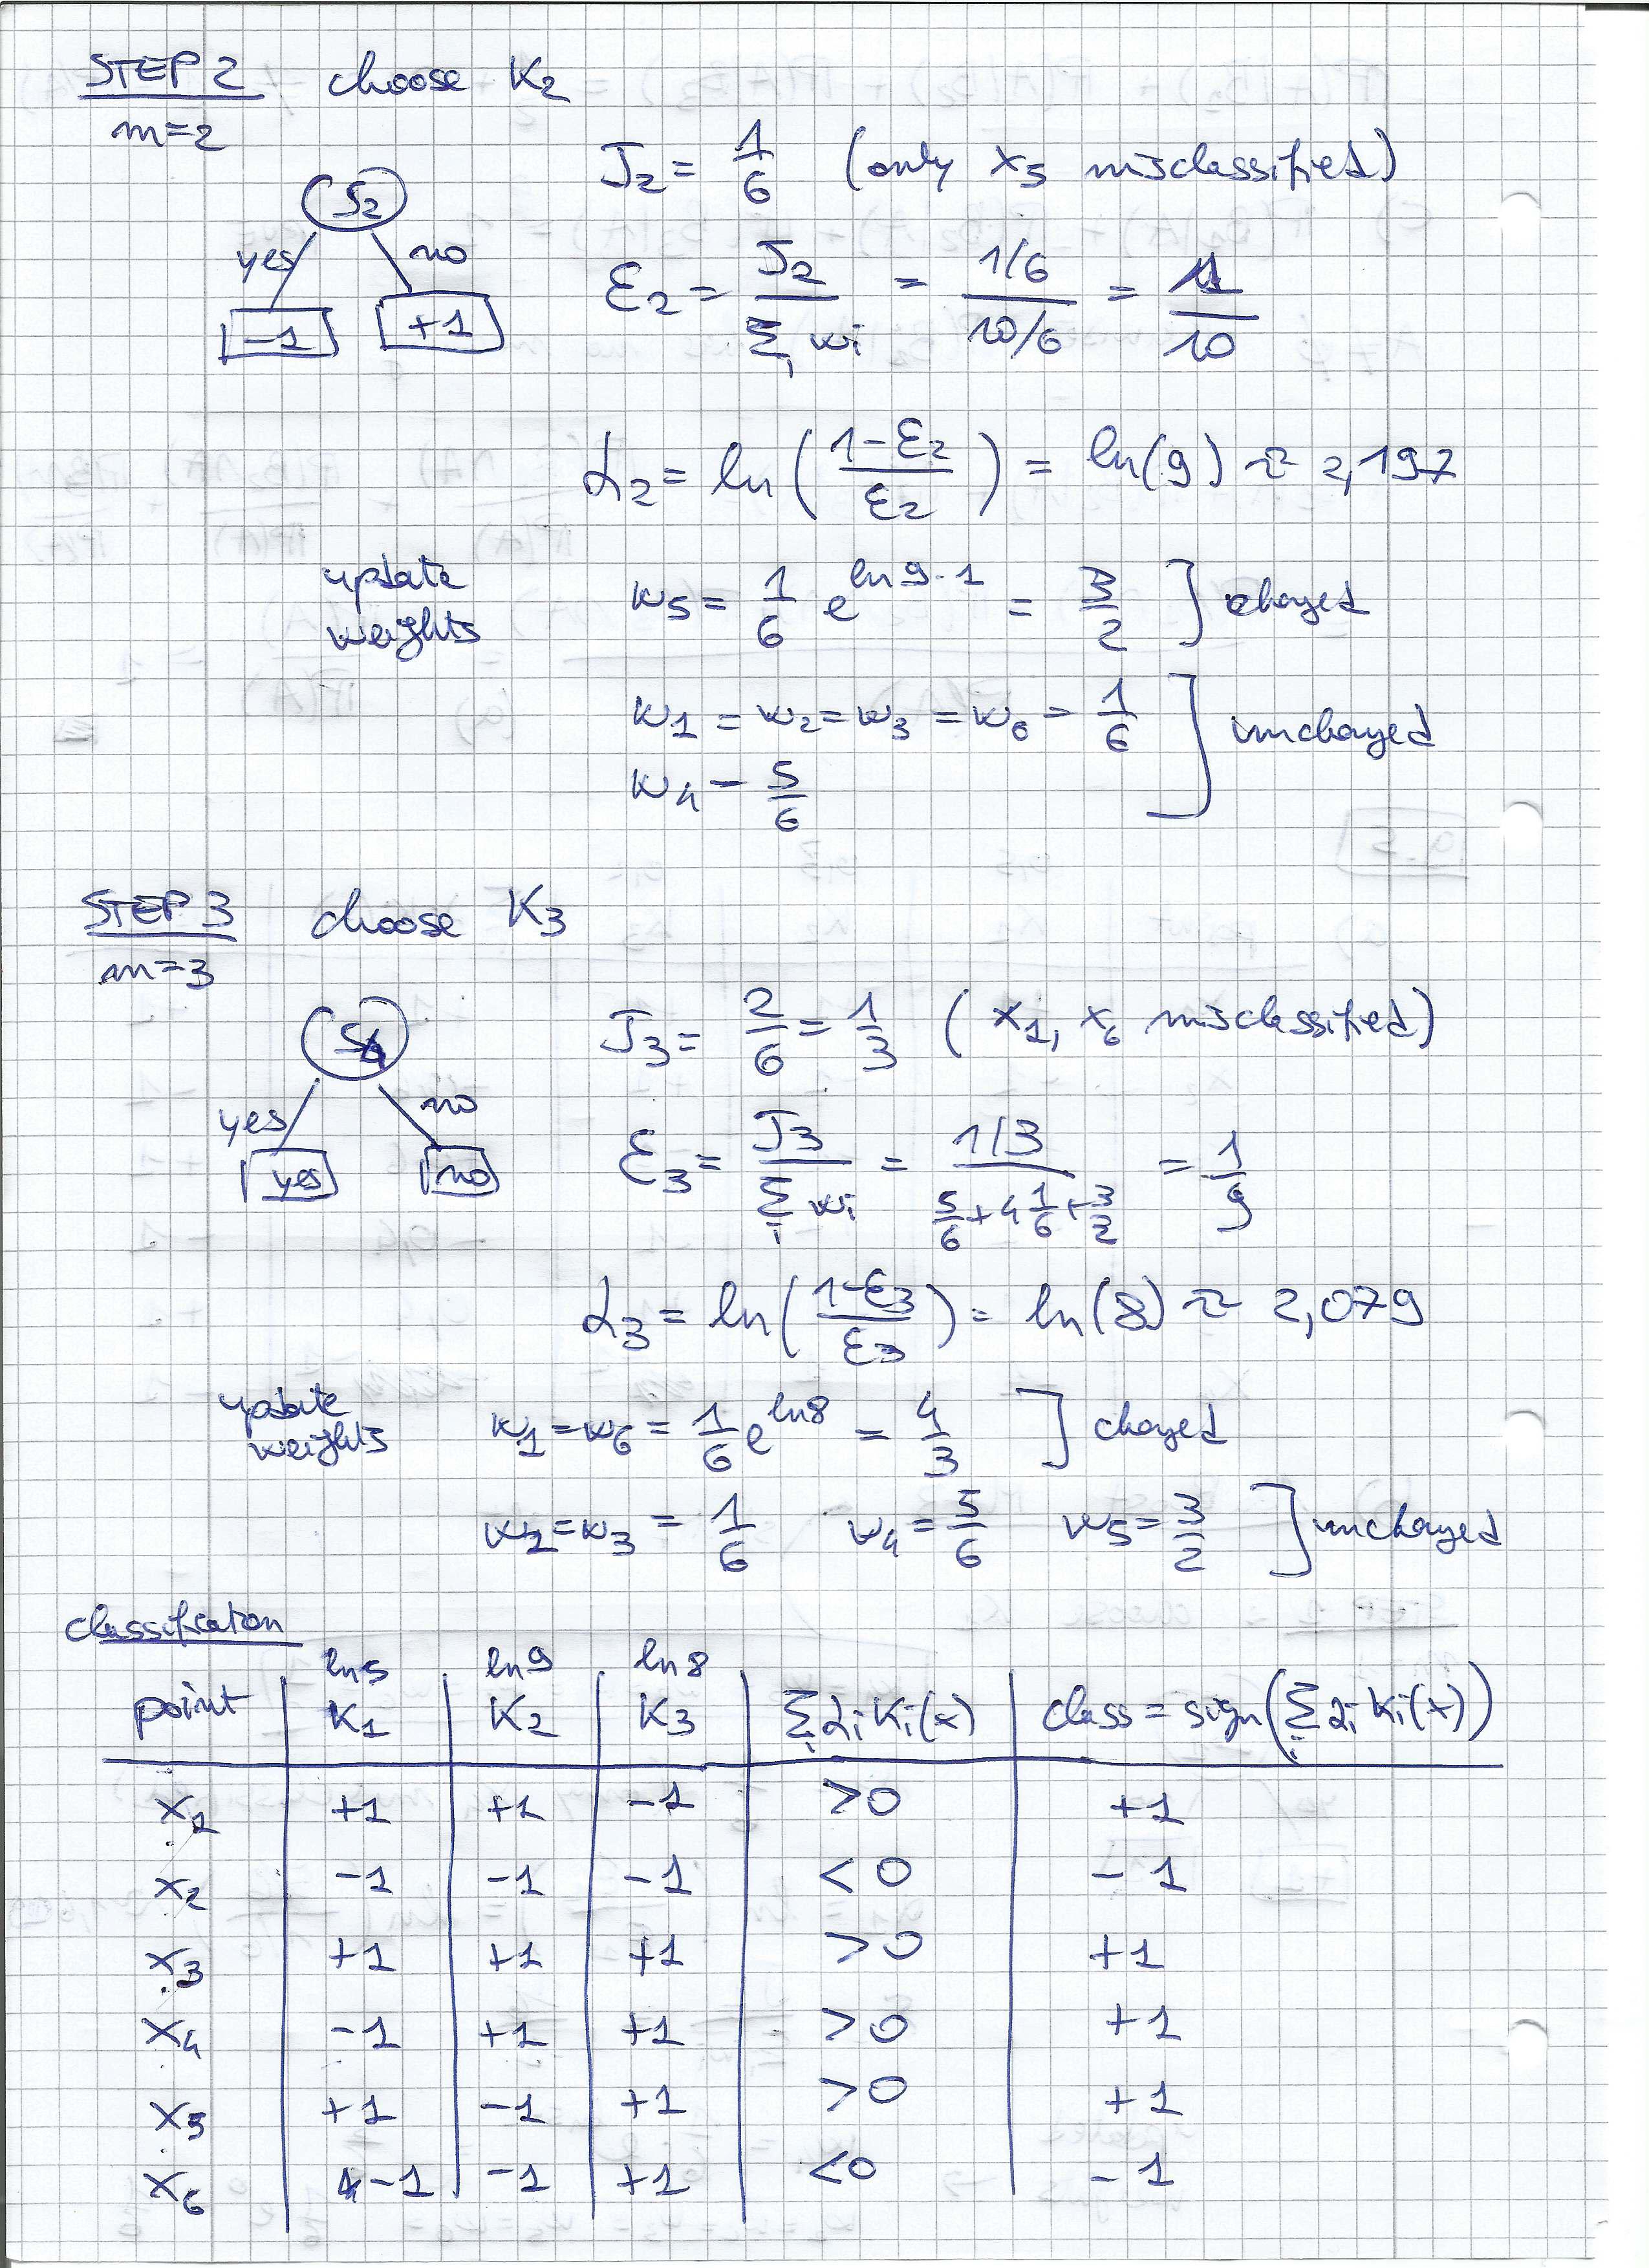 STEP 2 choose K2
m=2
J2 = 1/6 (only x5 misclassified)
S2
yes no
-1 +1
ε2 = J2 / Σi wi = 1/6 / 10/6 = 1/10
α2 = ln( (1-ε2)/ε2 ) = ln(9) ≈ 2,197
update weights
w5 = 1/6 e^(ln9·1) = 3/2 ] changed
w1 = w2 = w3 = w6 = 1/6
w4 = 5/6 ] unchanged
STEP 3 choose K3
m=3
J3 = 2/6 = 1/3 (x1, x6 misclassified)
yes no
yes no
ε3 = J3 / Σi wi = 1/3 / (5/6 + 4 1/6 + 3/2) = 1/9
α3 = ln( (1-ε3)/ε3 ) = ln(8) ≈ 2,079
update weights
w1 = w6 = 1/6 e^(ln8) = 4/3 ] changed
w2 = w3 = 1/6 w4 = 5/6 w5 = 3/2 ] unchanged
classification
ln5 ln9 ln8
point K1 K2 K3 Σi αi Ki(x) class = sign(Σi αi Ki(x))
x1 +1 +1 -1 >0 +1
x2 -1 -1 -1 <0 -1
x3 +1 +1 +1 >0 +1
x4 -1 +1 +1 >0 +1
x5 +1 -1 +1 >0 +1
x6 -1 -1 +1 <0 -1